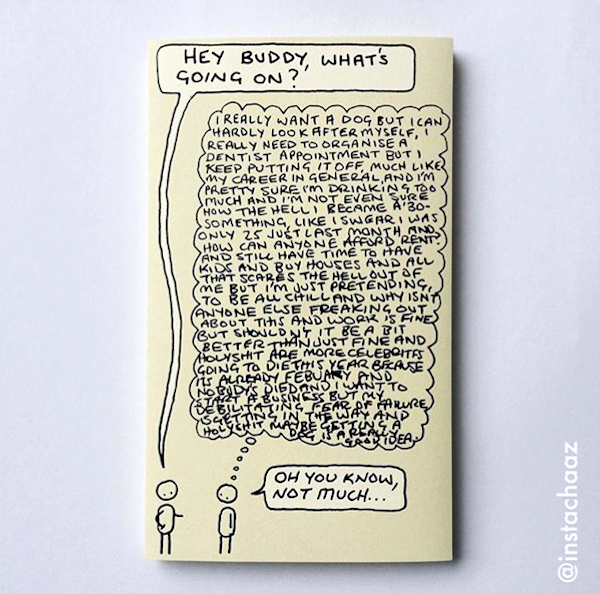 HEY BUDDY, WHAT'S
GOING ON?
I REALLY WANT A DOG BUT I CAN
HARDLY LOOK AFTER MYSELF, I
REALLY NEED TO ORGANISE A
DENTIST APPOINTMENT BUT I
KEEP PUTTING IT OFF, MUCH LIKE
MY CAREER IN GENERAL, AND I'M
PRETTY SURE I'M DRINKING TOO
MUCH AND I'M NOT EVEN SURE
HOW THE HELL I BECAME A 30-
SOMETHING, LIKE I SWEAR I WAS
ONLY 25 JUST LAST MONTH AND
HOW CAN ANYONE AFFORD RENT
AND STILL HAVE TIME TO HAVE
KIDS AND BUY HOUSES AND ALL
THAT SCARES THE HELL OUT OF
ME BUT I'M JUST PRETENDING,
TO BE ALL CHILL AND WHY ISN'T
ANYONE ELSE FREAKING OUT
ABOUT THIS AND WORK IS FINE
BUT SHOULDN'T IT BE A BIT
BETTER THAN JUST FINE AND
HOLYSHIT ARE MORE CELEBRITIES
GOING TO DIE THIS YEAR BECAUSE
ITS ALREADY FEBUARY AND
NOBODY'S DIED AND I WANT TO
START A BUSINESS BUT MY
DEBILITATING FEAR OF FAILURE
IS GETTING IN THE WAY AND
HOLYSHIT MAYBE GETTING A
DOG IS A REALLY
GOOD IDEA.
OH YOU KNOW,
NOT MUCH...
@instachaaz